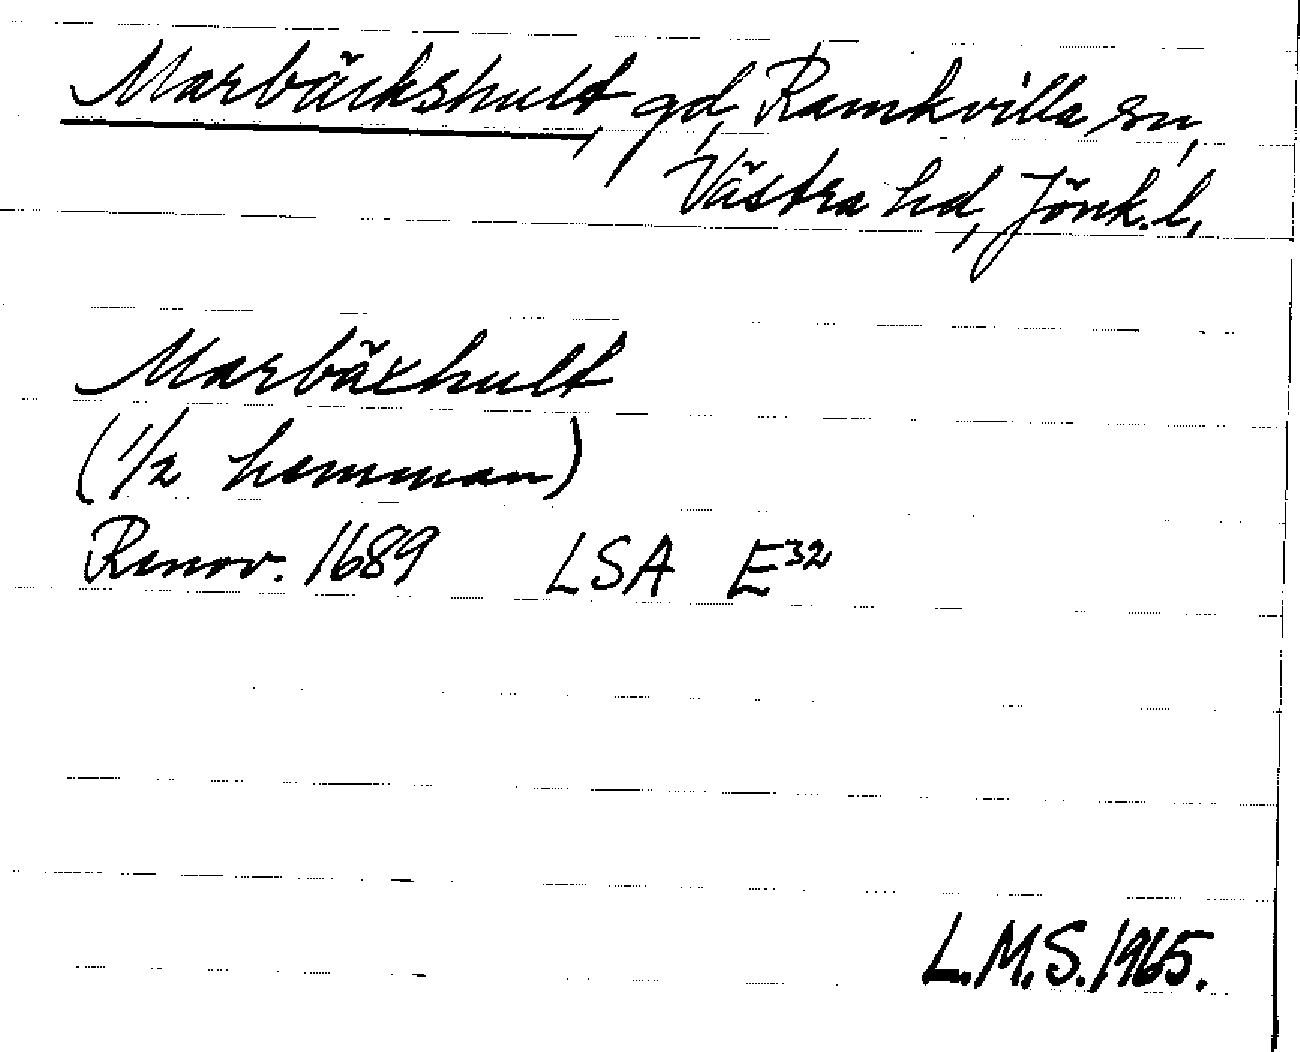 Marbäckshult, gd, Ramkvilla sn,
Västra hd, Jönk. l.
Marbäxhult
(1/2 hemman)
Renov. 1689 LSA E32
L.M.S. 1965.